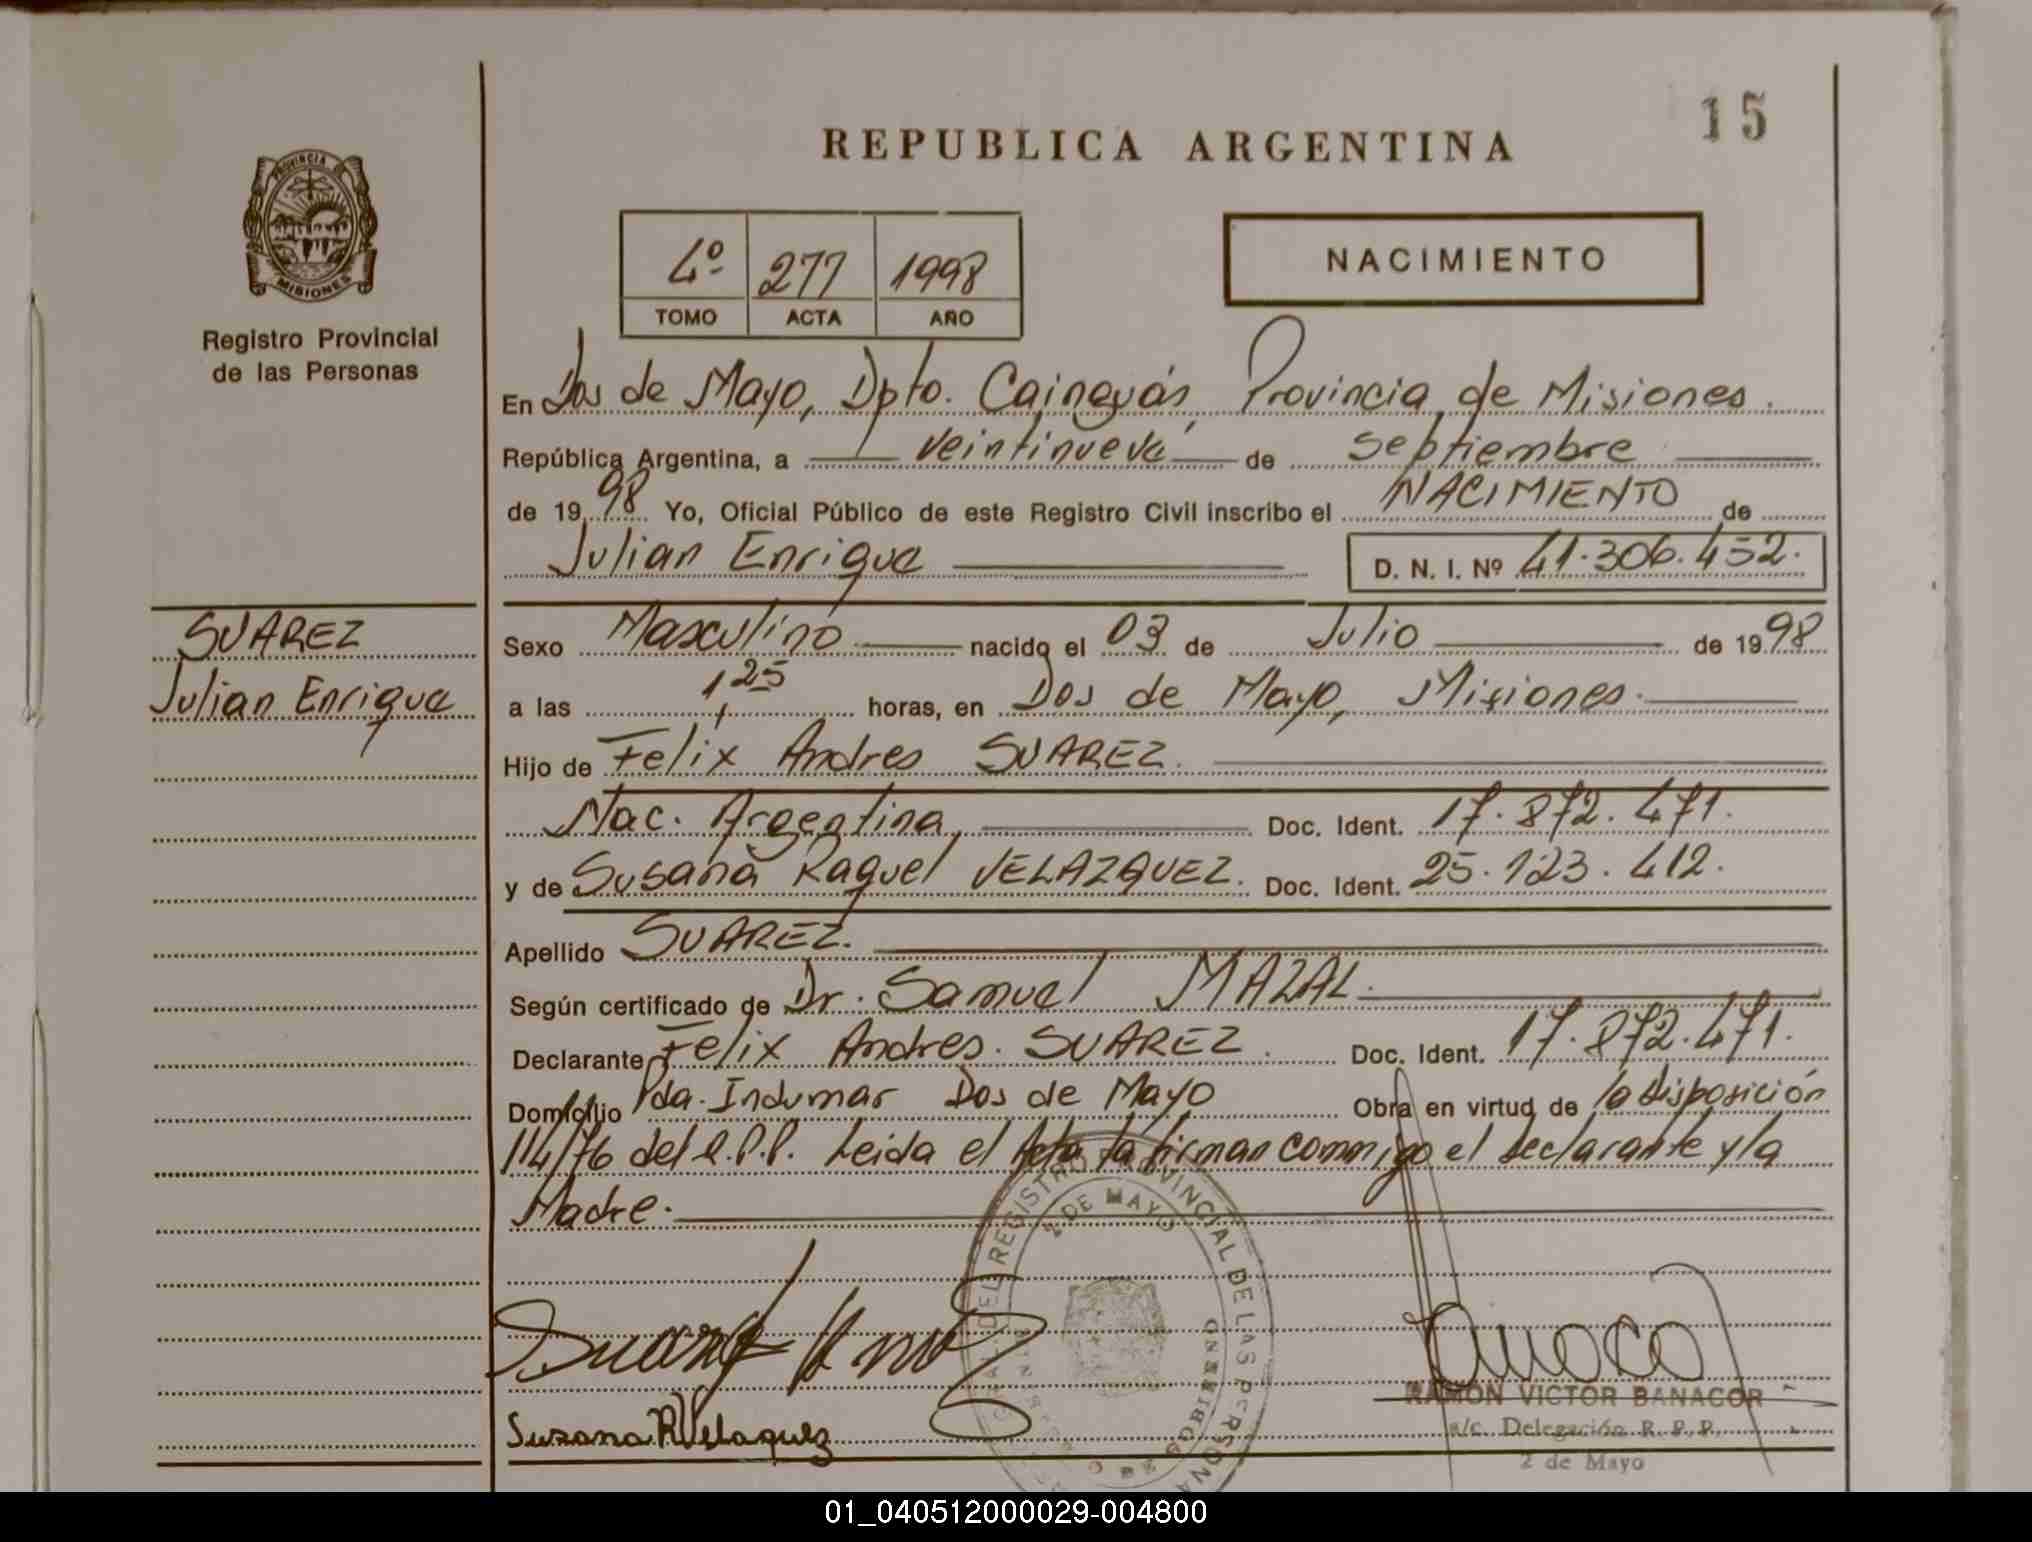 15
REPUBLICA ARGENTINA
PROVINCIA
MISIONES
Registro Provincial
de las Personas
4º 277 1998
TOMO ACTA AÑO
NACIMIENTO
En Dos de Mayo, Dpto. Cainguás, Provincia de Misiones.
República Argentina, a veintinueve de septiembre
de 1998 Yo, Oficial Público de este Registro Civil inscribo el NACIMIENTO de
Julian Enrique D. N. I. Nº 41.306.452.
SUAREZ
Julian Enrique
Sexo Masculino nacido el 03 de Julio de 1998
a las 1,25 horas, en Dos de Mayo, Misiones.
Hijo de Felix Andres SUAREZ.
Nac. Argentina, Doc. Ident. 17.872.471.
y de Susana Raquel VELAZQUEZ. Doc. Ident. 25.123.412.
Apellido SUAREZ.
Según certificado de Dr. Samuel MAZAL.
Declarante Felix Andres SUAREZ. Doc. Ident. 17.872.471.
Domicilio Pda. Indumar Dos de Mayo Obra en virtud de la disposición
114/76 del R.P.P. Leida el Acta la firman conmigo el declarante y la
Madre.
REGISTRO PROVINCIAL DE LAS PERSONAS
2 DE MAYO
Susana R Velaquez
RAMON VICTOR BANACOR
a/c. Delegación R. P. P.
2 de Mayo
01_040512000029-004800